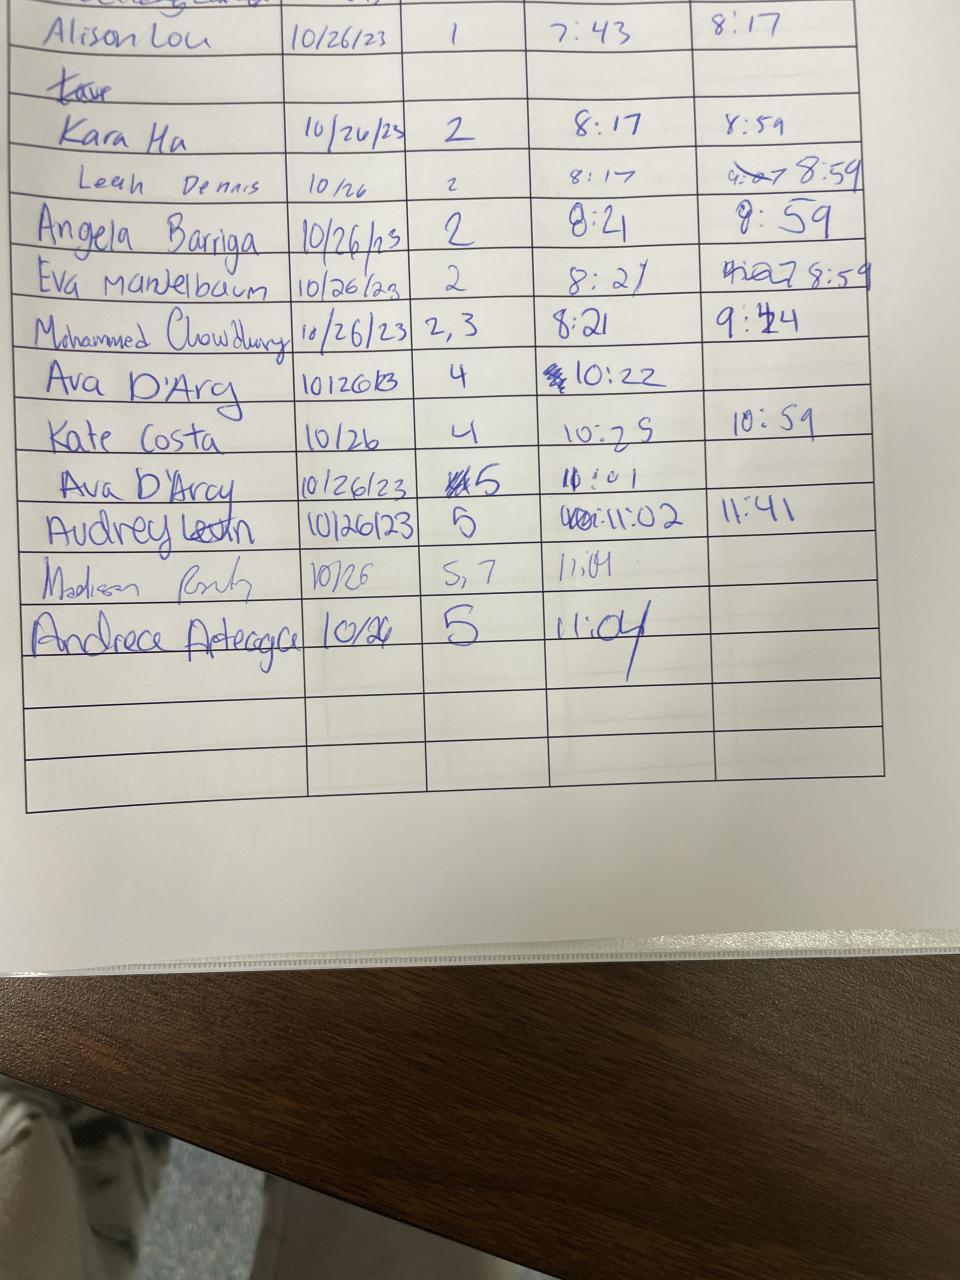 Alison Lou 10/26/23 1 7:43 8:17
Kara Ha 10/26/23 2 8:17 8:59
Leah Dennis 10/26 2 8:17 8:59
Angela Barriga 10/26/23 2 8:21 8:59
Eva Mandelbaum 10/26/23 2 8:21 8:59
Mohammed Chowdhury 10/26/23 2,3 8:21 9:44
Ava D'Arcy 10/26/23 4 10:22
Kate Costa 10/26 4 10:25 10:59
Ava D'Arcy 10/26/23 5 11:01
Audrey 10/26/23 5 11:02 11:41
Madison 10/26 5,7 11:04
Andrea Arteaga 10/26 5 11:04